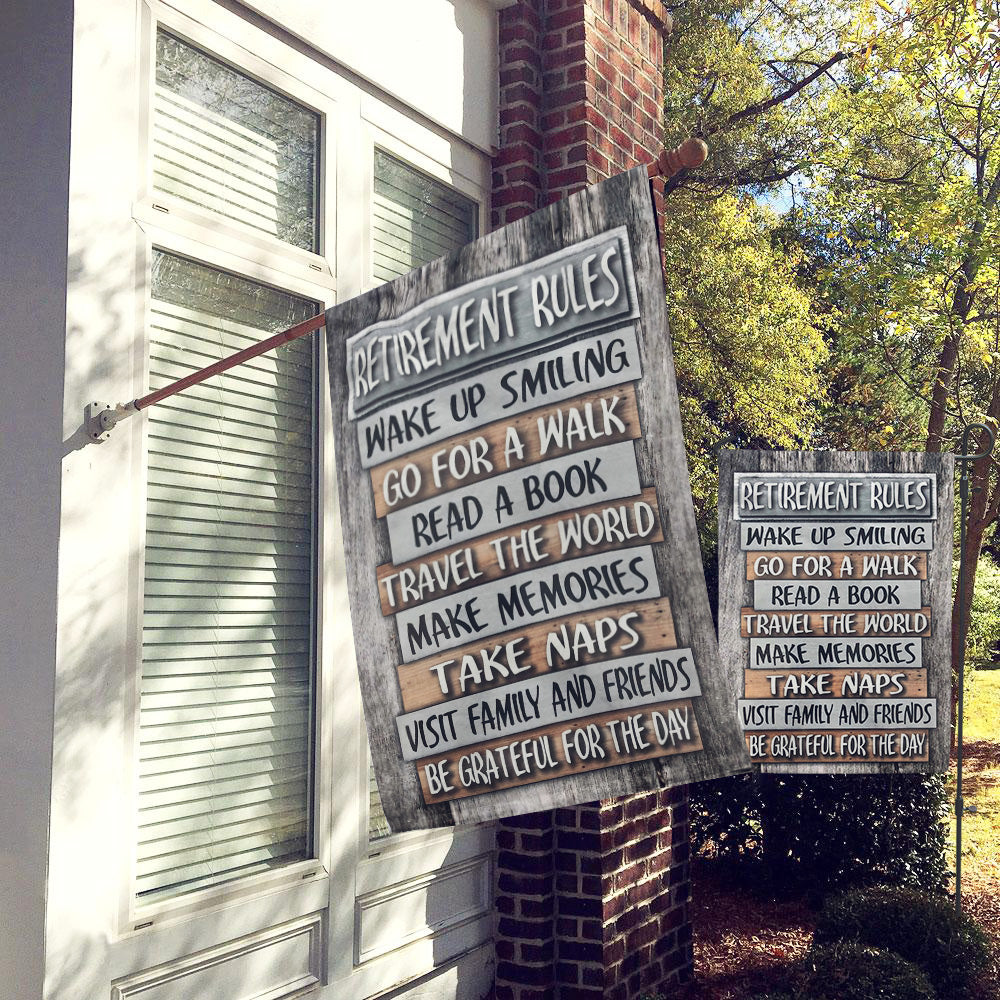 RETIREMENT RULES
WAKE UP SMILING
GO FOR A WALK
READ A BOOK
TRAVEL THE WORLD
MAKE MEMORIES
TAKE NAPS
VISIT FAMILY AND FRIENDS
BE GRATEFUL FOR THE DAY
RETIREMENT RULES
WAKE UP SMILING
GO FOR A WALK
READ A BOOK
TRAVEL THE WORLD
MAKE MEMORIES
TAKE NAPS
VISIT FAMILY AND FRIENDS
BE GRATEFUL FOR THE DAY